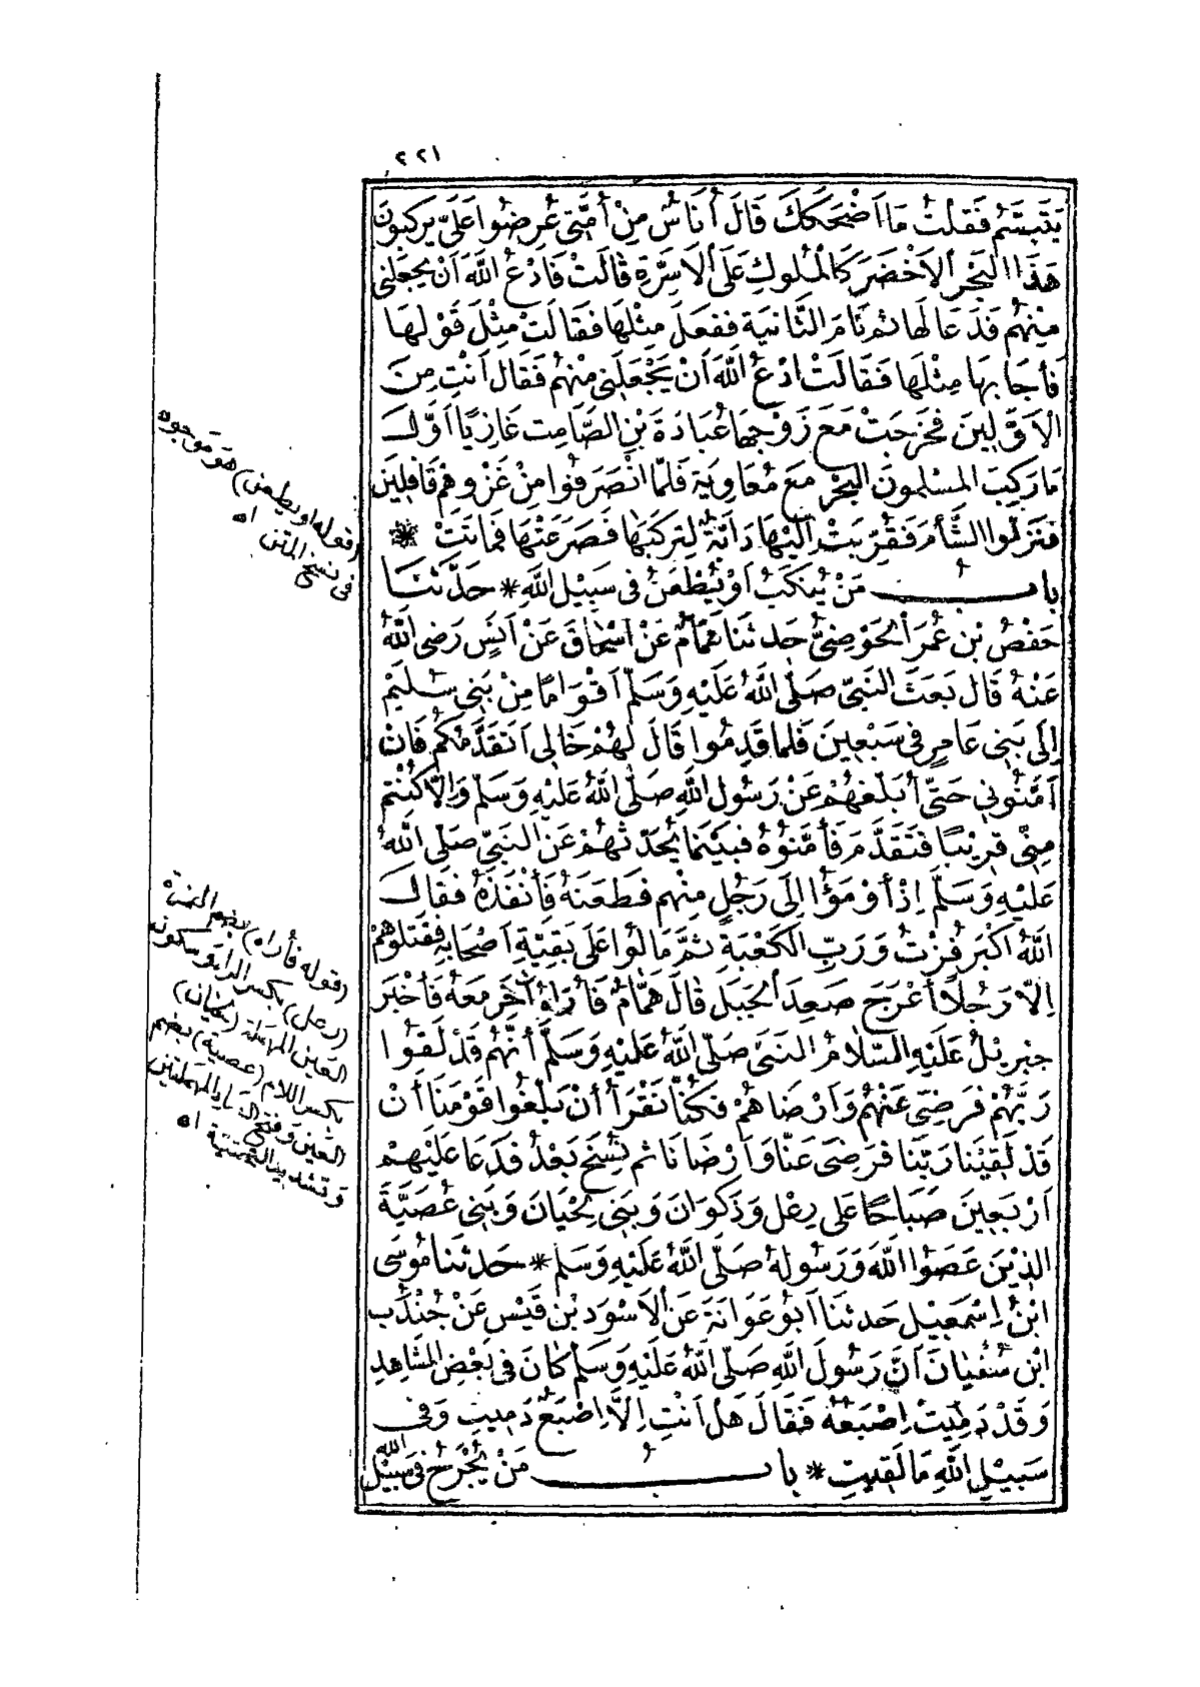 ٢٢١
يَتَبَسَّمُ فَقُلْتُ مَا اَضْحَكَكَ قَالَ أُنَاسٌ مِنْ أُمَّتِى عُرِضُوا عَلَىَّ يَرْكَبُونَ
هَذَا الْبَحْرَ الْاَخْضَرَ كَالْمُلُوكِ عَلَى الْاَسِرَّةِ قَالَتْ فَادْعُ اللَّهَ اَنْ يَجْعَلَنِى
مِنْهُمْ فَدَعَا لَهَا ثم نَامَ الثَّانِيَةَ فَفَعَلَ مِثْلَهَا فَقَالَتْ مِثْلَ قَوْلِهَا
فَأَجَابَهَا مِثْلَهَا فَقَالَتْ ادْعُ اللَّهَ أَنْ يَجْعَلَنِى مِنْهُمْ فَقَالَ اَنْتِ مِنَ
الْاَوَّلِينَ فَخَرَجَتْ مَعَ زَوْجِهَا عُبَادَةَ بْنِ الصَّامِتِ غَازِيًا اَوَّلَ
مَا رَكِبَ الْمُسْلِمُونَ الْبَحْرَ مَعَ مُعَاوِيَةَ فَلَمَّا انْصَرَفُوا مِنْ غَزْوِهِمْ قَافِلِينَ
فَنَزَلُوا الشَّأْمَ فَقُرِّبَتْ اِلَيْهَا دَابَّةٌ لِتَرْكَبَهَا فَصَرَعَتْهَا فَمَاتَتْ *
بابُ مَنْ يُنْكَبُ اَوْ يُطْعَنُ فى سَبِيْلِ اللَّهِ * حَدَّثَنَا
حَفْصُ بْنُ عُمَرَ الْحَوْضِىُّ حَدثنَا هَمَّامٌ عَنْ اِسْحَاقَ عَنْ اَنَسٍ رَضِىَ اللَّهُ
عَنْهُ قَالَ بَعَثَ النَّبِىّ صَلَّى اللَّهُ عَلَيْهِ وَسَلَّمَ اَقْوَامًا مِنْ بَنِى سُلَيْمٍ
اِلَى بَنِى عَامِرٍ فى سَبْعِينَ فَلَمَّا قَدِمُوا قَالَ لَهُمْ خَالِى اَتَقَدَّمُكُمْ فَاِنْ
اَمَّنُونِى حَتَّى أُبَلِّغَهُمْ عَنْ رَسُولِ اللَّهِ صَلَّى اللَّهُ عَلَيْهِ وَسَلَّمَ وَاِلَّا كُنْتُمْ
مِنِّى قَرِيْبًا فَتَقَدَّمَ فَأَمَّنُوهُ فَبَيْنَمَا يُحَدِّثُهُمْ عَنِ النَّبِىِّ صَلَّى اللَّهُ
عَلَيْهِ وَسَلَّمَ إِذْ أَوْمَؤُا اِلَى رَجُلٍ مِنْهُمْ فَطَعَنَهُ فَأَنْفَذَهُ فَقَالَ
اللَّهُ اَكْبَر فُزْتُ وَرَبِّ الْكَعْبَةِ ثُمَّ مَالُوا عَلَى بَقِيَّةِ اَصْحَابِهِ فَقَتَلُوهُمْ
اِلَّا رَجُلًا أَعْرَجَ صَعِدَ الْجَبَلَ قَالَ هَمَّامٌ فَأُرَاهُ آخَرَ مَعَهُ فَأَخْبَرَ
جِبْرِيْلُ عَلَيْهِ السَّلَامُ النَّبِىَّ صَلَّى اللَّهُ عَلَيْهِ وَسَلَّمَ أَنَّهُمْ قَدْ لَقُوا
رَبَّهُمْ فَرَضِىَ عَنْهُمْ وَاَرْضَاهُمْ فَكُنَّا نَقْرَأُ أَنْ بَلِّغُوا قَوْمَنَا أَنْ
قَدْ لَقِيْنَا رَبَّنَا فَرَضِىَ عَنَّا وَأَرْضَانَا ثم نُسِخَ بَعْدُ فَدَعَا عَلَيْهِمْ
اَرْبَعِينَ صَبَاحًا عَلَى رِعْلٍ وَذَكْوَانَ وَبَنِى لِحْيَانَ وَبَنِى عُصَيَّةَ
الَّذِيْنَ عَصَوُا اللَّهَ وَرَسُولَهُ صَلَّى اللَّهُ عَلَيْهِ وَسَلَّمَ * حَدثنَا مُوسَى
ابْنُ اِسْمَعِيْلَ حَدثنَا اَبُو عَوَانَةَ عَنِ الْاَسْوَدِ بْنِ قَيْسٍ عَنْ جُنْدُبِ
ابْنِ سُفْيَانَ اَنَّ رَسُولَ اللَّهِ صَلَّى اللَّهُ عَلَيْهِ وَسَلَّمَ كَانَ فى بَعْضِ الْمَشَاهِدِ
وَقَدْ دَمِيَتْ اِصْبَعُهُ فَقَالَ هَلْ اَنْتِ اِلَّا اِصْبَعٌ دَمِيتِ وَفى
سَبِيْلِ اللَّهِ مَا لَقِيتِ * بابُ مَنْ يُجْرَحُ فى سَبِيْلِ اللَّهِ
(قوله او يطعن) هو موجود
فى نسخ المتن اه
(قوله فأراه) بضم الهمزة
(رعل) بكسر الراء وسكون
العين المهملة (لحيان)
بكسر اللام (عصية) بضم
العين وفتح الصاد المهملتين
وتشديد التحتية اه